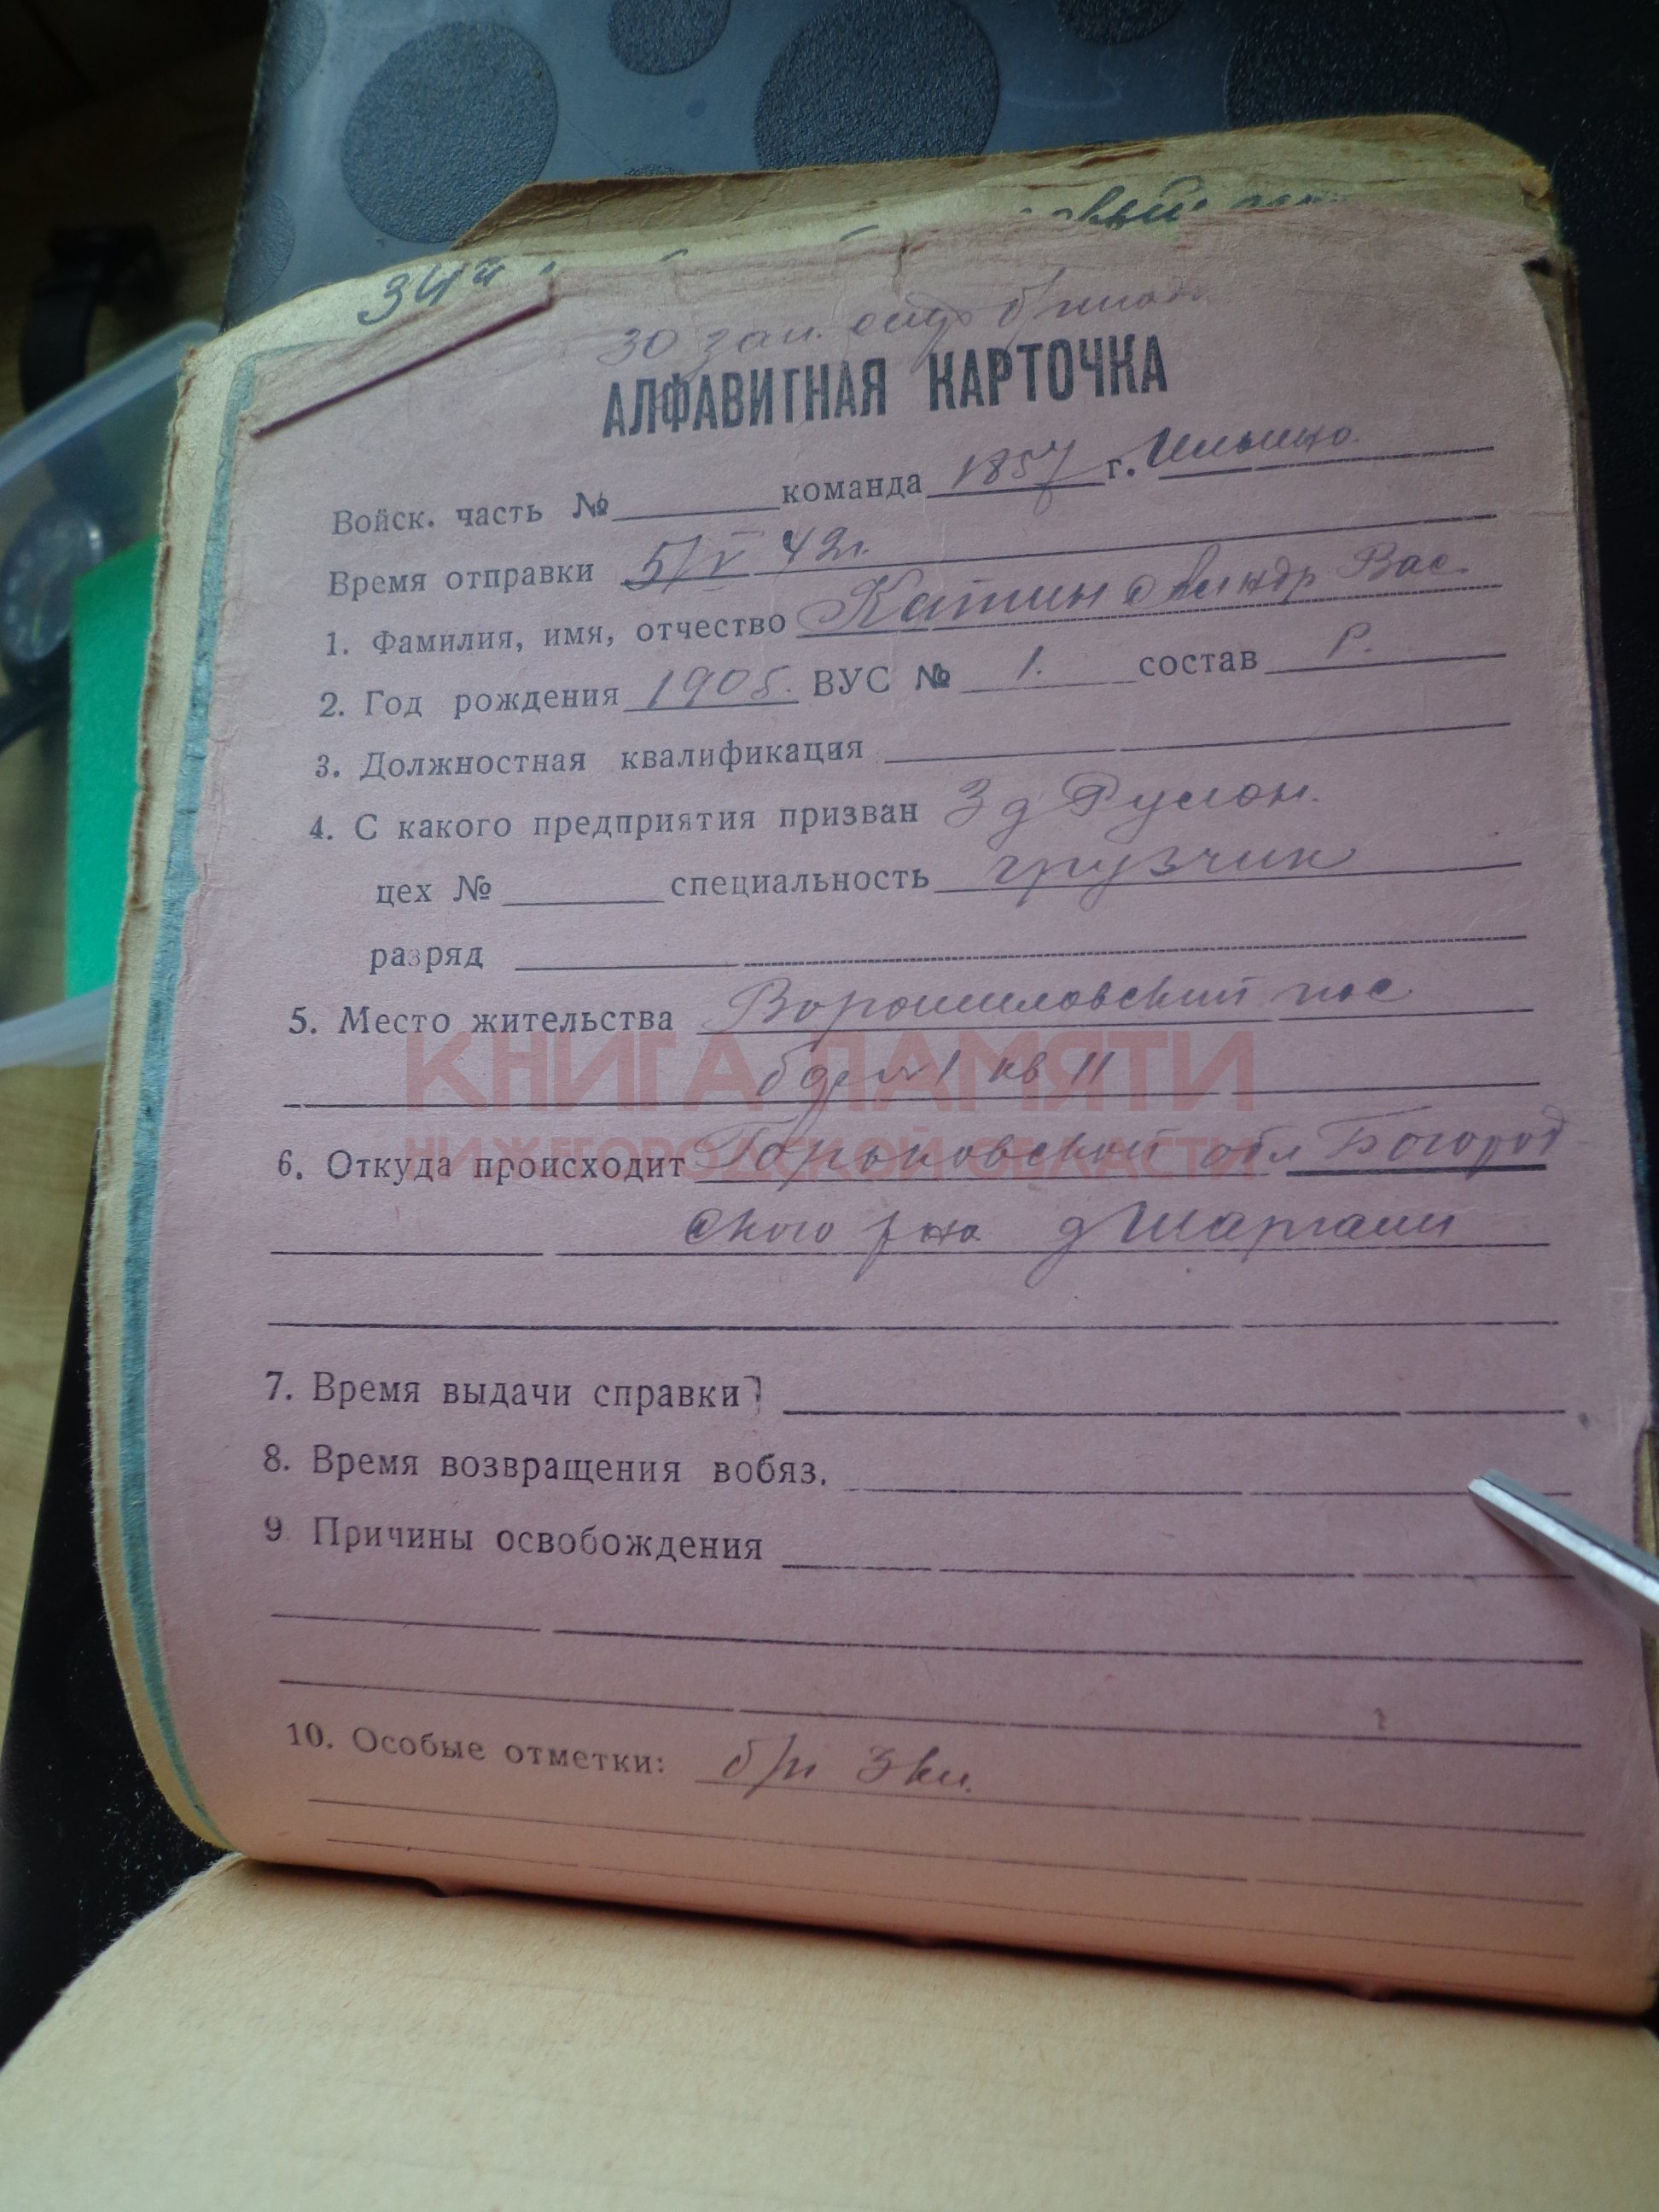 34й
30 зап. стр бригада
АЛФАВИТНАЯ КАРТОЧКА
Войск. часть № команда 1857 г. Ильино
Время отправки 5/V 42г.
1. Фамилия, имя, отчество Катин Александр Вас.
2. Год рождения 1905. ВУС № 1. состав Р.
3. Должностная квалификация
4. С какого предприятия призван З д Руслон.
цех № специальность грузчик
разряд
5. Место жительства Ворошиловский пос
КНИГА ПАМЯТИ
б дом 1 кв 11
НИЖЕГОРОДСКОЙ ОБЛАСТИ
6. Откуда происходит Горьковской обл Богород
ского р на д Шаргали
7. Время выдачи справки
8. Время возвращения вобяз.
9 Причины освобождения
10. Особые отметки: б/п 3 кл.